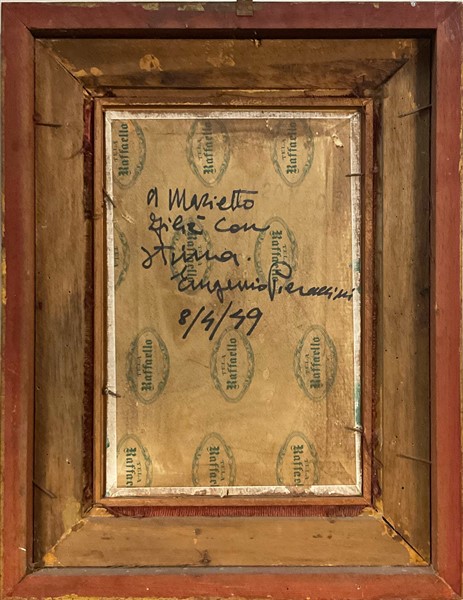 TELA Raffaello
TELA Raffaello
TELA Raffaello
A Marietto
Giliè con
stima.
Eugenio Pieraccini
8/4/49
TELA Raffaello
TELA Raffaello
TELA Raffaello
TELA Raffaello
TELA Raffaello
TELA Raffaello
TELA Raffaello
TELA Raffaello